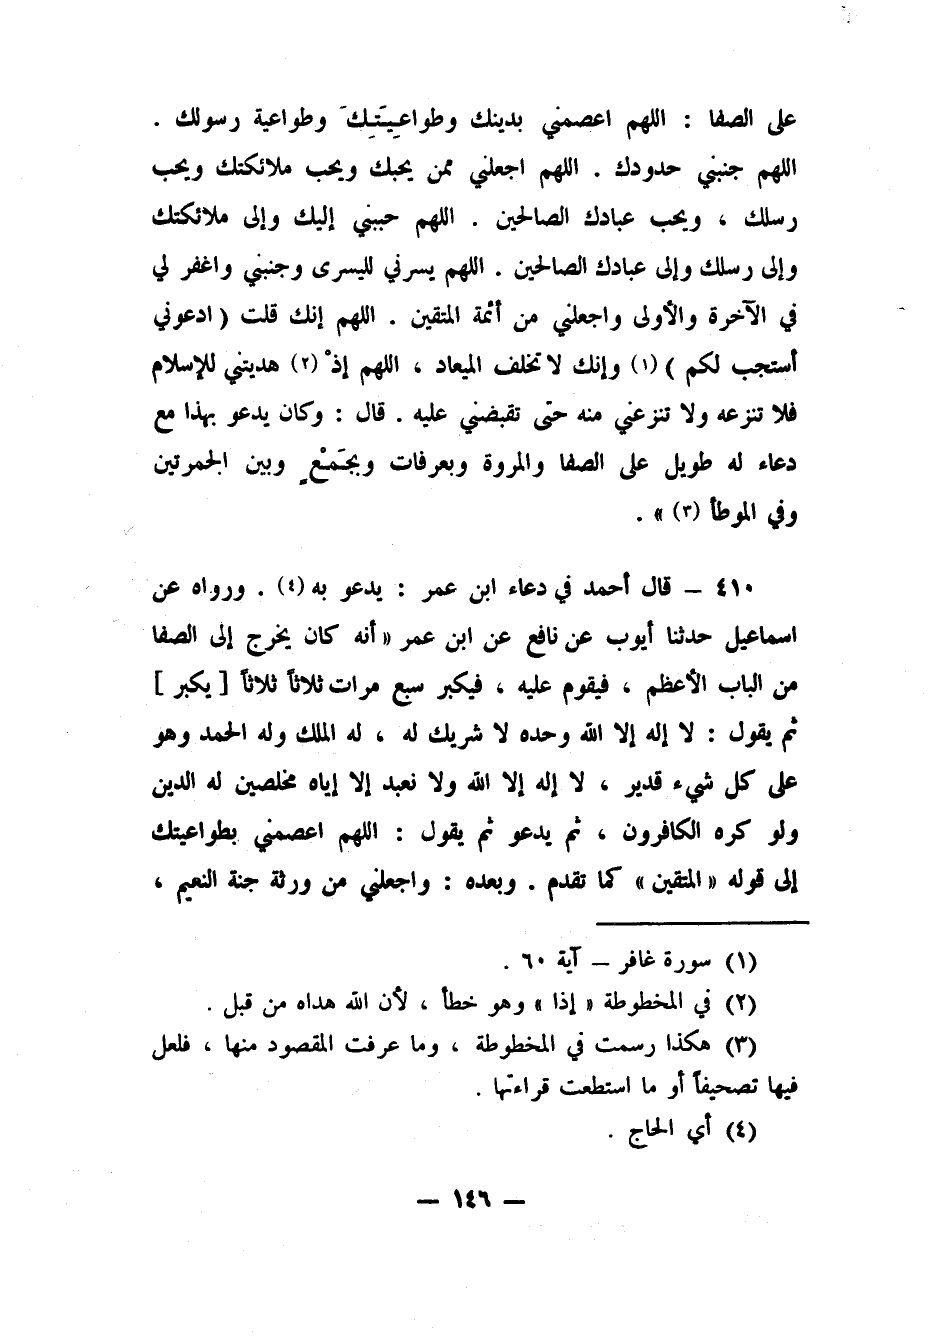 على الصفا : اللهم اعصمني بدينك وطواعِيَتِكَ وطواعية رسولك .
اللهم جنبني حدودك . اللهم اجعلني ممن يحبك ويحب ملائكتك ويحب
رسلك ، ويحب عبادك الصالحين . اللهم حببني إليك وإلى ملائكتك
وإلى رسلك وإلى عبادك الصالحين . اللهم يسرني لليسرى وجنبني واغفر لي
في الآخرة والأولى واجعلني من أئمة المتقين . اللهم إنك قلت ( ادعوني
أستجب لكم ) (١) وإنك لا تخلف الميعاد ، اللهم إذْ (٢) هديتني للإسلام
فلا تنزعه ولا تنزعني منه حتى تقبضني عليه . قال : وكان يدعو بهذا مع
دعاء له طويل على الصفا والمروة وبعرفات وبجَمْعٍ وبين الجمرتين
وفي الموطأ (٣) » .
٤١٠ – قال أحمد في دعاء ابن عمر : يدعو به (٤) . ورواه عن
اسماعيل حدثنا أيوب عن نافع عن ابن عمر « أنه كان يخرج إلى الصفا
من الباب الأعظم ، فيقوم عليه ، فيكبر سبع مرات ثلاثاً ثلاثاً [ يكبر ]
ثم يقول : لا إله إلا الله وحده لا شريك له ، له الملك وله الحمد وهو
على كل شيء قدير ، لا إله إلا الله ولا نعبد إلا إياه مخلصين له الدين
ولو كره الكافرون ، ثم يدعو ثم يقول : اللهم اعصمني بطواعيتك
إلى قوله « المتقين » كما تقدم . وبعده : واجعلني من ورثة جنة النعيم ،
(١) سورة غافر – آية ٦٠ .
(٢) في المخطوطة « إذا » وهو خطأ ، لأن الله هداه من قبل .
(٣) هكذا رسمت في المخطوطة ، وما عرفت المقصود منها ، فلعل
فيها تصحيفاً أو ما استطعت قراءتها .
(٤) أي الحاج .
– ١٤٦ –